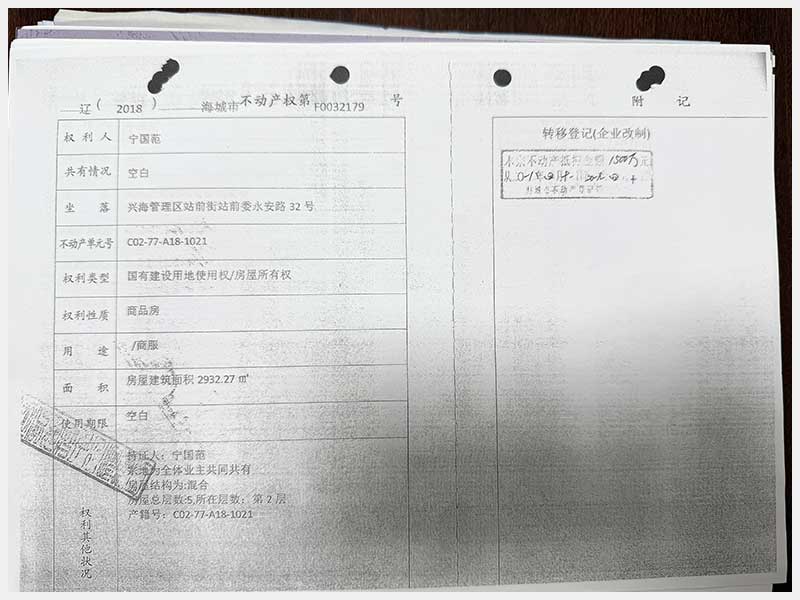 辽 ( 2018 ) 海城市 不动产权第 F0032179 号
权利人 宁国范
共有情况 空白
坐落 兴海管理区站前街站前委永安路 32 号
不动产单元号 C02-77-A18-1021
权利类型 国有建设用地使用权/房屋所有权
权利性质 商品房
用途 /商服
面积 房屋建筑面积 2932.27 ㎡
使用期限 空白
权利其他状况
持证人: 宁国范
宗地为全体业主共同共有
房屋结构为:混合
房屋总层数:5,所在层数: 第 2 层
产籍号: C02-77-A18-1021
附记
转移登记(企业改制)
本宗不动产抵押金额 1500万元